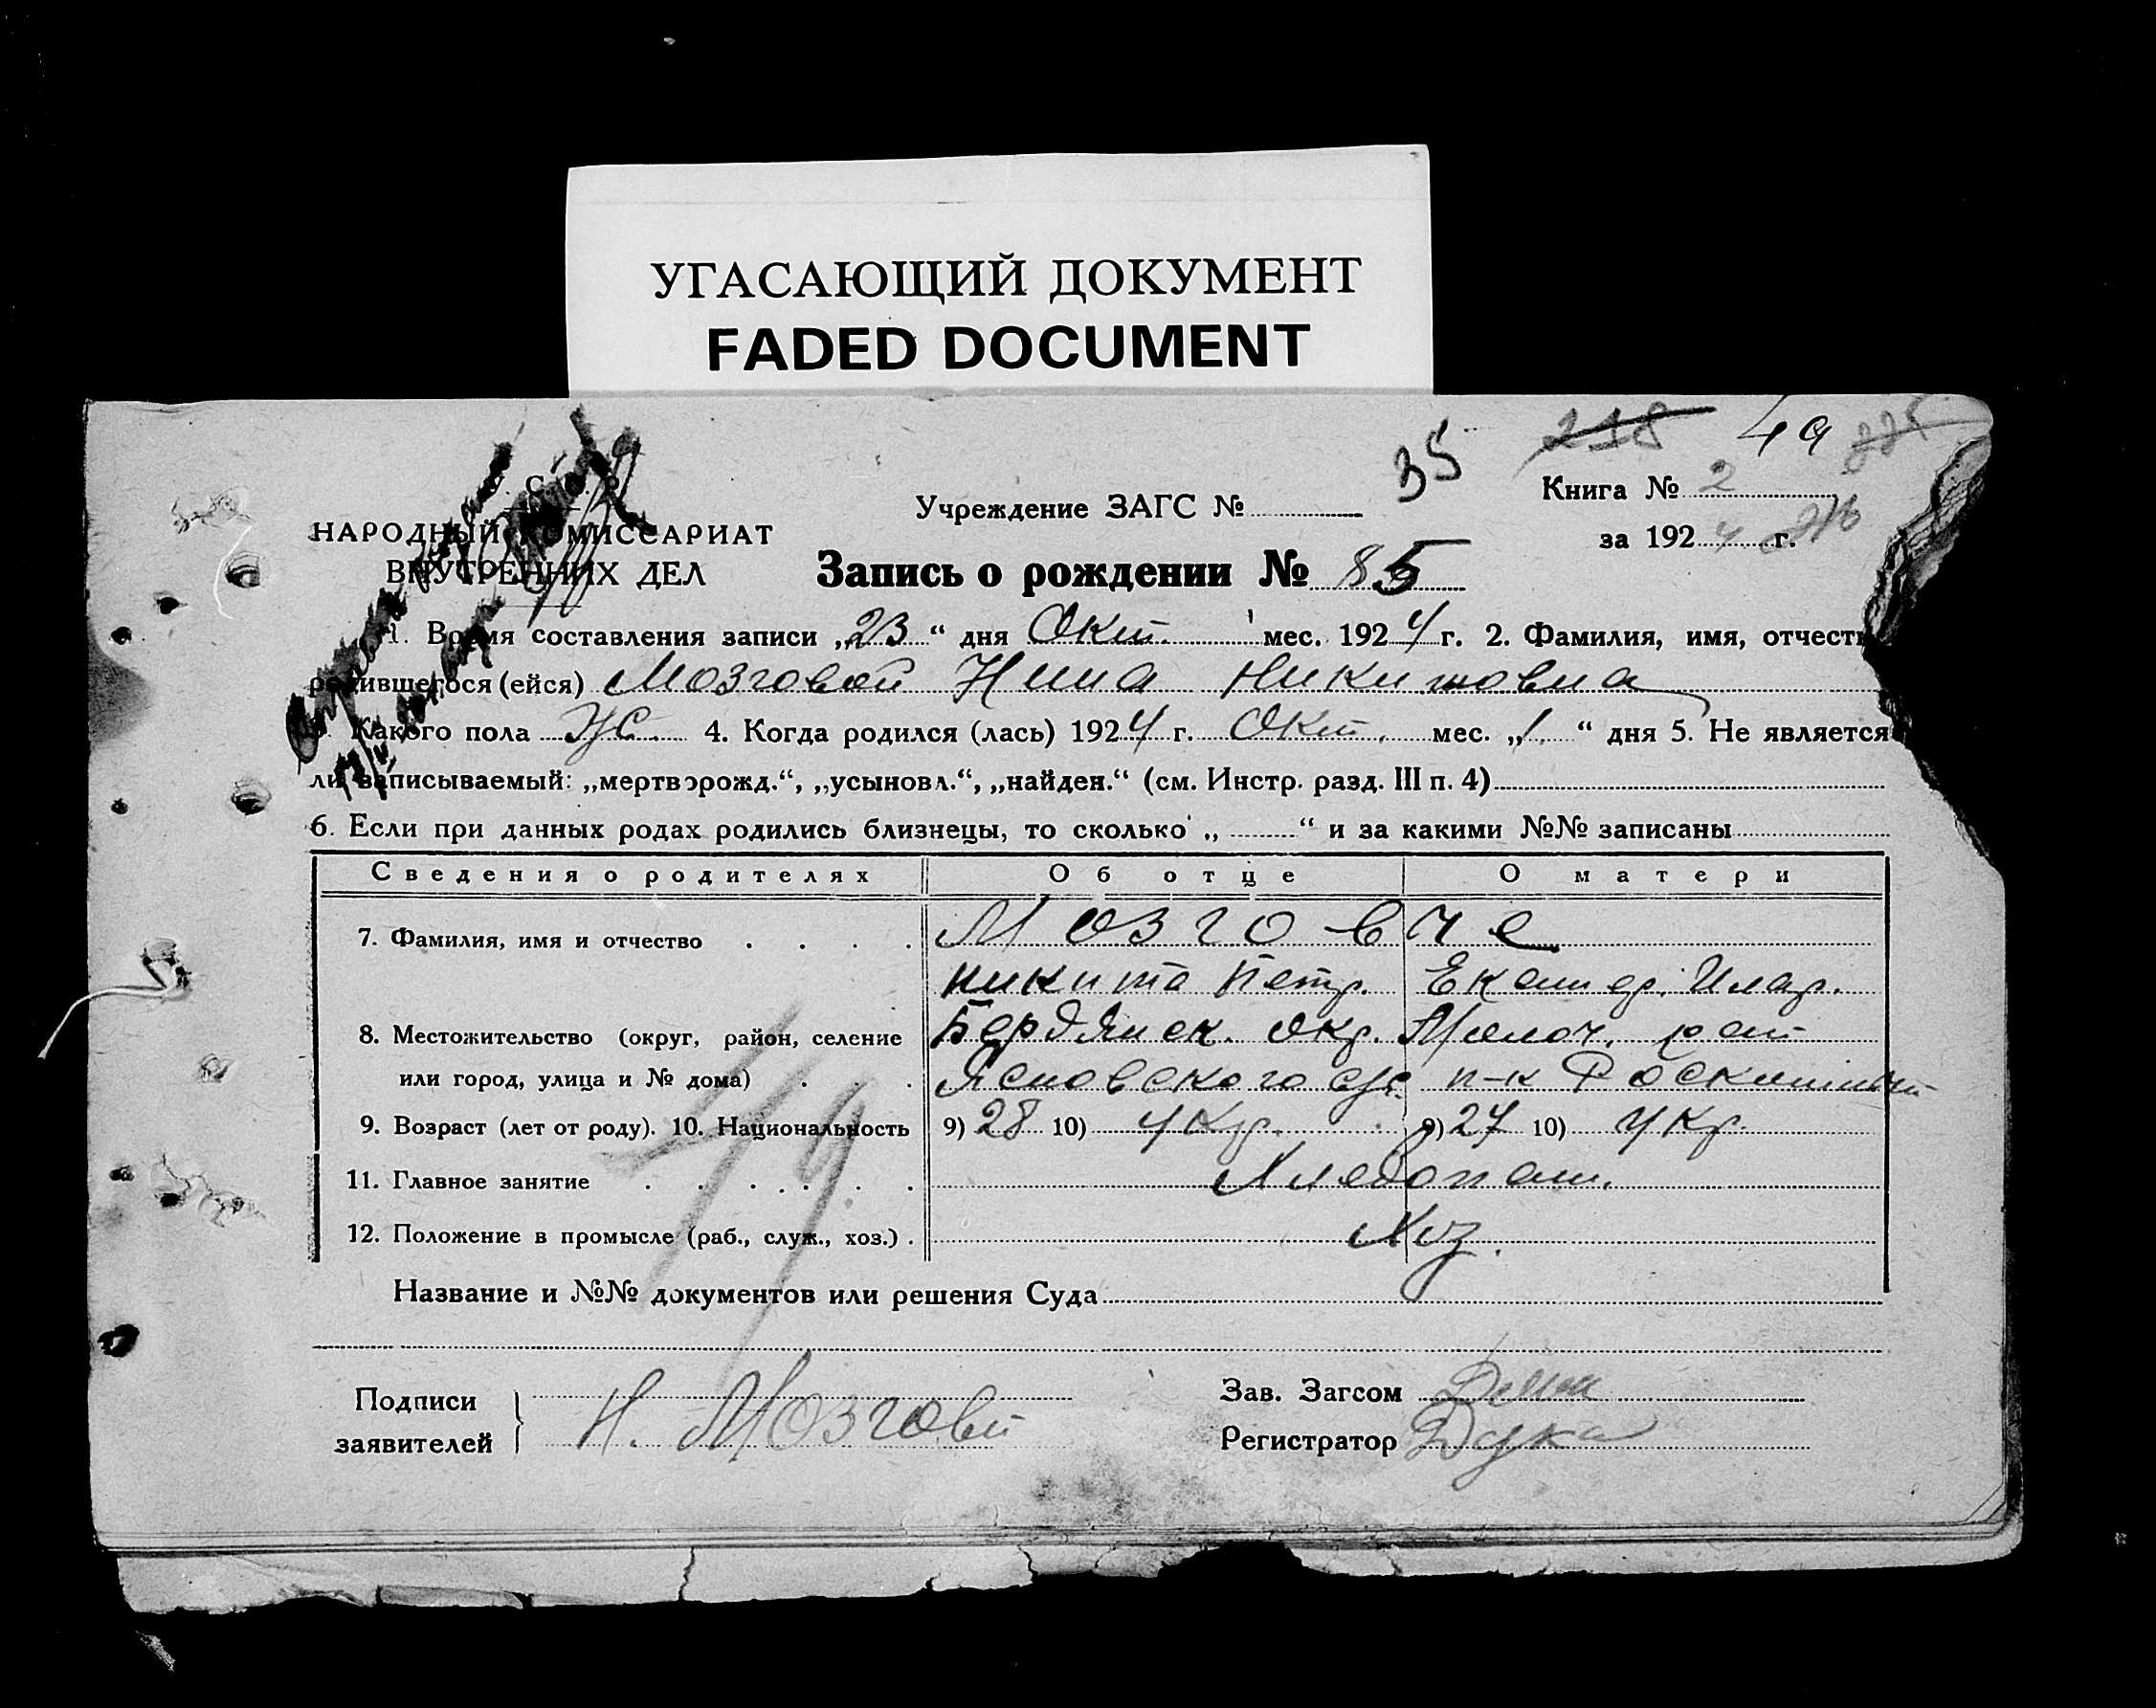 УГАСАЮЩИЙ ДОКУМЕНТ
FADED DOCUMENT
218 49
35
Книга № 2
Учреждение ЗАГС №
за 1924 г.
НАРОДНЫЙ КОМИССАРИАТ
ВНУТРЕННИХ ДЕЛ
Запись о рождении № 85
1. Время составления записи „23“ дня Окт. мес. 1924 г. 2. Фамилия, имя, отчеств
родившегося (ейся) Мозговой Нина Никитовна
3. Какого пола Ж. 4. Когда родился (лась) 1924 г. Окт. мес. „1“ дня 5. Не является
ли записываемый: „мертворожд.“, „усыновл.“, „найден.“ (см. Инстр. разд. III п. 4)
6. Если при данных родах родились близнецы, то сколько „ “ и за какими №№ записаны
Сведения о родителях Об отце О матери
7. Фамилия, имя и отчество Мозговые
Никита Петр. Екатер. Илар.
8. Местожительство (округ, район, селение Бердянск. окр. Молоч. рай
или город, улица и № дома) п-к
9. Возраст (лет от роду). 10. Национальность 9) 28 10) Укр. 9) 27 10) Укр.
11. Главное занятие Хлебопаш.
12. Положение в промысле (раб., служ., хоз.) Хоз.
Название и №№ документов или решения Суда
Подписи
заявителей
Н. Мозговй
Зав. Загсом
Регистратор Дука
49.